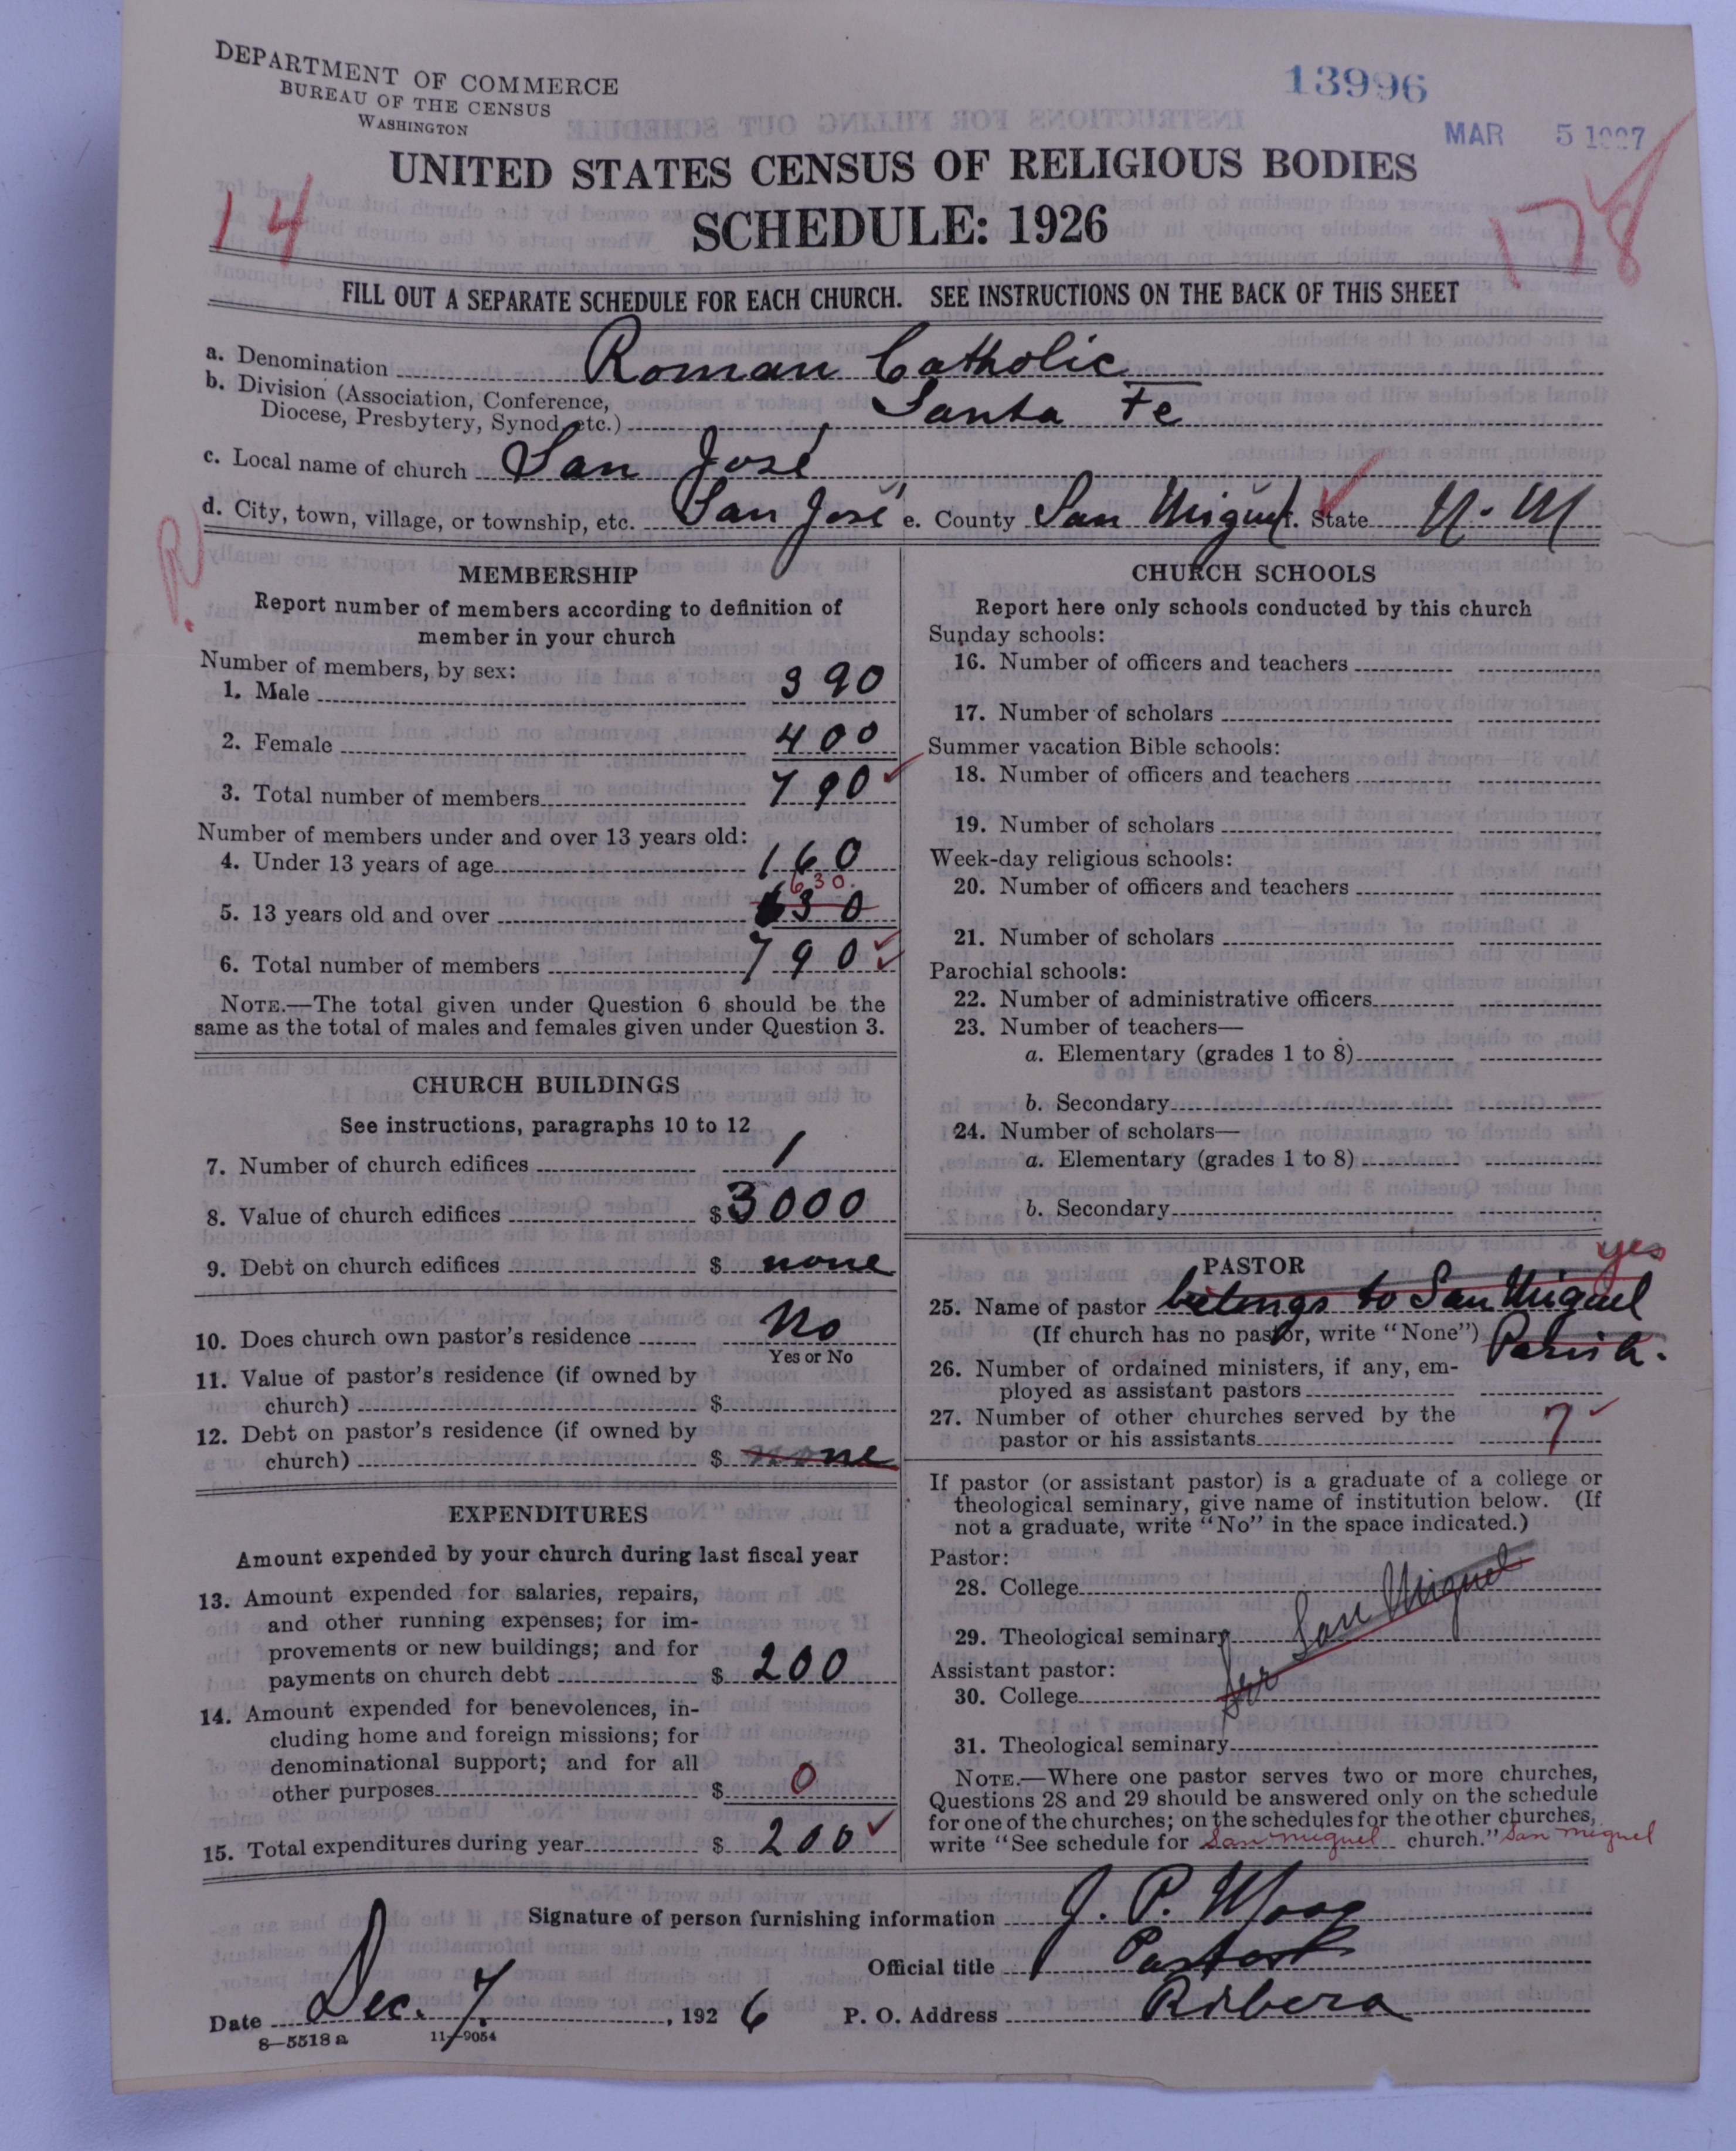 DEPARTMENT OF COMMERCE
BUREAU OF THE CENSUS
WASHINGTON
13996
MAR 5 1927
UNITED STATES CENSUS OF RELIGIOUS BODIES
SCHEDULE: 1926
14
178
FILL OUT A SEPARATE SCHEDULE FOR EACH CHURCH. SEE INSTRUCTIONS ON THE BACK OF THIS SHEET
a. Denomination Roman Catholic
b. Division (Association, Conference,
Diocese, Presbytery, Synod, etc.) Santa Fe
c. Local name of church San José
d. City, town, village, or township, etc. San José e. County San Miguel f. State N. M
R
MEMBERSHIP
Report number of members according to definition of
member in your church
Number of members, by sex:
1. Male 390
2. Female 400
3. Total number of members 790
Number of members under and over 13 years old:
4. Under 13 years of age 160
630.
5. 13 years old and over 630
6. Total number of members 790
NOTE.—The total given under Question 6 should be the
same as the total of males and females given under Question 3.
CHURCH BUILDINGS
See instructions, paragraphs 10 to 12
7. Number of church edifices 1
8. Value of church edifices $ 3000
9. Debt on church edifices $ none
10. Does church own pastor's residence No
Yes or No
11. Value of pastor's residence (if owned by
church) $
12. Debt on pastor's residence (if owned by
church) $ none
EXPENDITURES
Amount expended by your church during last fiscal year
13. Amount expended for salaries, repairs,
and other running expenses; for im-
provements or new buildings; and for
payments on church debt $ 200
14. Amount expended for benevolences, in-
cluding home and foreign missions; for
denominational support; and for all
other purposes $ 0
15. Total expenditures during year $ 200
CHURCH SCHOOLS
Report here only schools conducted by this church
Sunday schools:
16. Number of officers and teachers
17. Number of scholars
Summer vacation Bible schools:
18. Number of officers and teachers
19. Number of scholars
Week-day religious schools:
20. Number of officers and teachers
21. Number of scholars
Parochial schools:
22. Number of administrative officers
23. Number of teachers—
a. Elementary (grades 1 to 8)
b. Secondary
24. Number of scholars—
a. Elementary (grades 1 to 8)
b. Secondary
yes
PASTOR
25. Name of pastor belongs to San Miguel
(If church has no pastor, write "None") Parish.
26. Number of ordained ministers, if any, em-
ployed as assistant pastors
27. Number of other churches served by the
pastor or his assistants 7
If pastor (or assistant pastor) is a graduate of a college or
theological seminary, give name of institution below. (If
not a graduate, write "No" in the space indicated.)
Pastor:
28. College
29. Theological seminary
for San Miguel
Assistant pastor:
30. College
31. Theological seminary
NOTE.—Where one pastor serves two or more churches,
Questions 28 and 29 should be answered only on the schedule
for one of the churches; on the schedules for the other churches,
write "See schedule for San Miguel church." San Miguel
Signature of person furnishing information J. P. Moog
Official title Pastor
Date Dec. 7, 1926 P. O. Address Ribera
8—5518a 11—9054